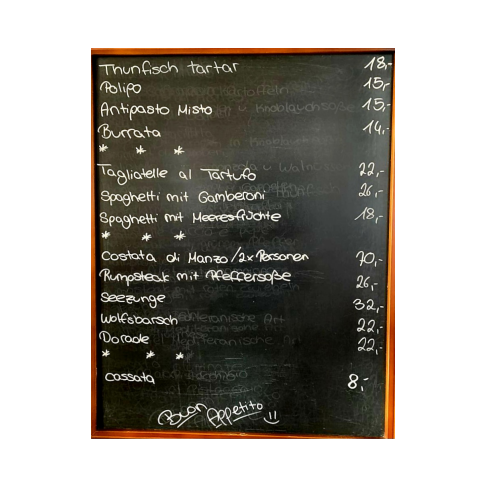 Thunfisch tartar 18,-
Polipo 15,-
Antipasto Misto 15,-
Burrata 14,-
* * *
Tagliatelle al Tartufo 22,-
Spaghetti mit Gamberoni 26,-
Spaghetti mit Meeresfrüchte 18,-
* * *
Costata di Manzo/2x Personen 70,-
Rumpsteak mit Pfeffersoße 26,-
Seezunge 32,-
Wolfsbarsch 22,-
Dorade 22,-
* * *
Cassata 8,-
Buon Appetito